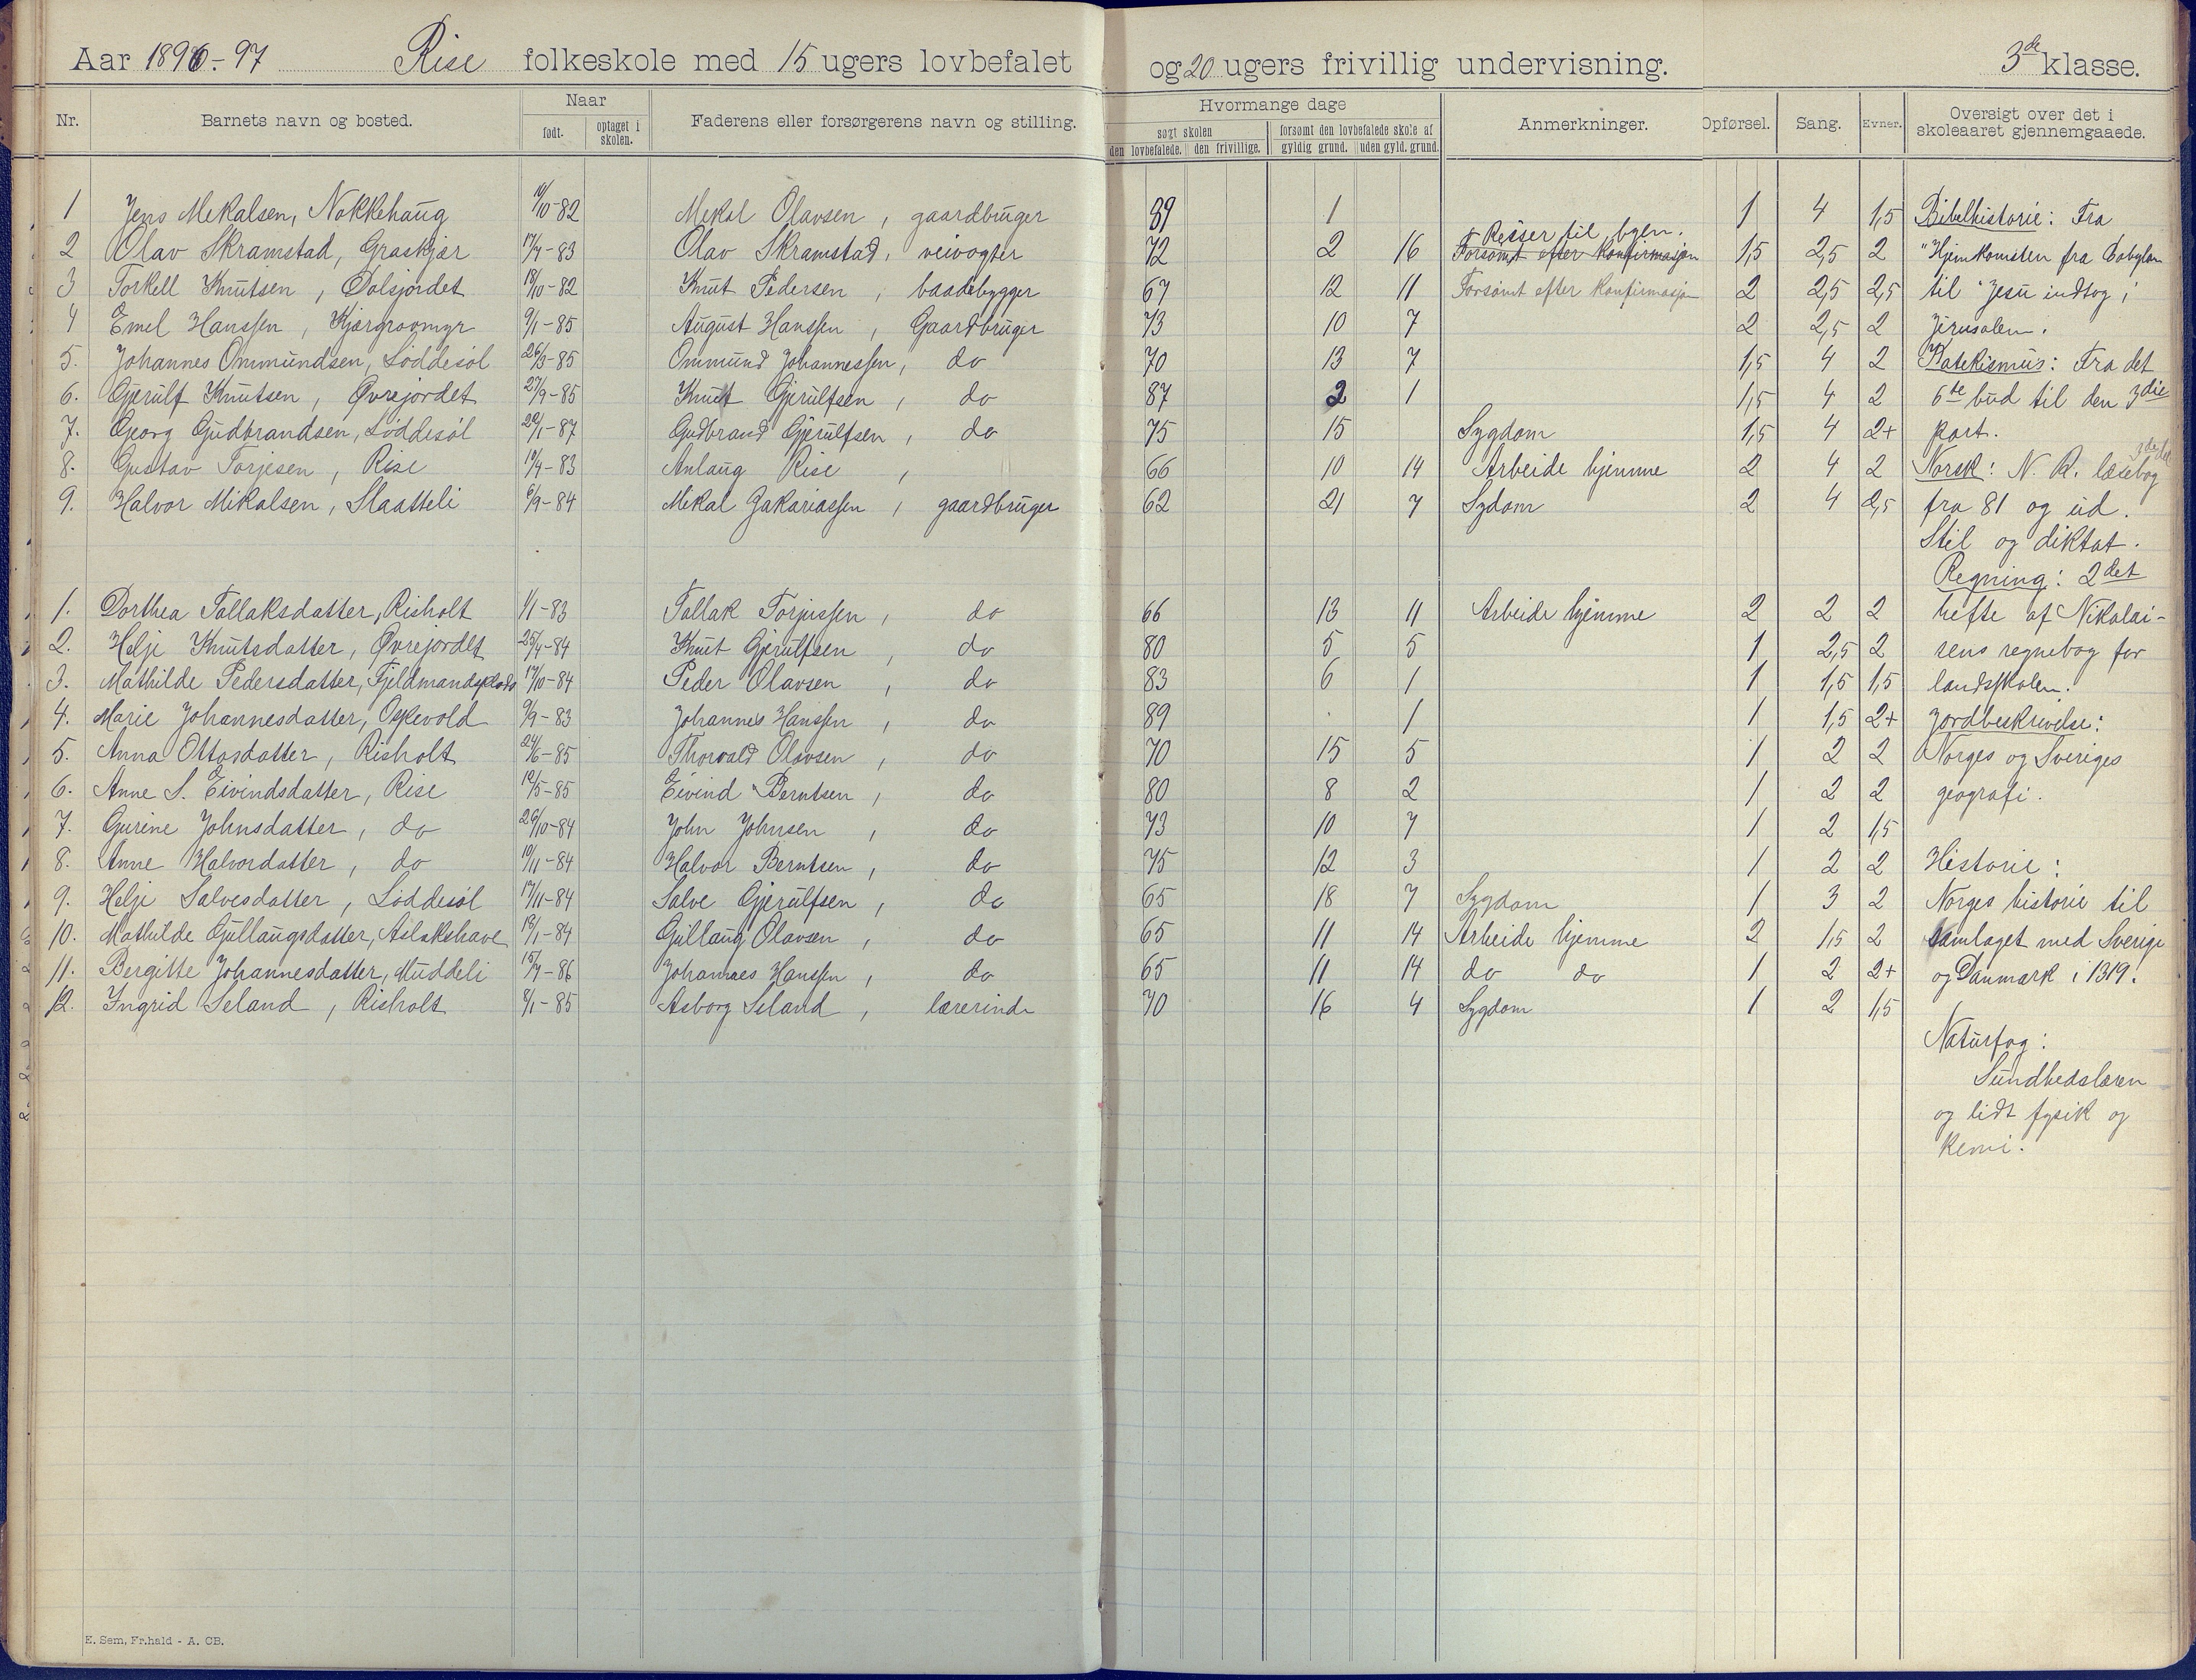 Aar 1896-97 Rise folkeskole med 15 ugers lovbefalet og 20 ugers frivillig undervisning. 3de klasse.
Nr. Barnets navn og bosted. Naar født. optaget i skolen. Faderens eller forsørgerens navn og stilling. Hvormange dage søgt skolen den lovbefalede. den frivillige. forsømt den lovbefalede skole af gyldig grund. uden gyld. grund. Anmerkninger. Opførsel. Sang. Evner. Oversigt over det i skoleaaret gjennemgaaede.
1 Jens Mekalsen, Nokkehaug 10-82 Mekal Olavsen, gaardbruger 89 1 1 4 1,5 Bibelhistorie: Fra
2 Olav Skramstad, Graskjær 17/7-83 Olav Skramstad, veivogter 72 2 16 Reiser til byen. Forsømt efter konfirmasjon 1,5 2,5 2 "Hjemkomsten fra Babylon
3 Torkell Knutsen, Dalsjordet 18/10-82 Knut Pedersen, baadebygger 67 12 11 Forsømt efter konfirmasjon 2 2,5 2,5 til "Jesu indtog i
4 Emel Hanssen, Kjærgravmyr 9/1-85 August Hanssen, Gaardbruger 73 10 7 2 2,5 2 Jerusalem.
5. Johannes Ommundsen, Løddesøl 26/3-85 Ommund Johannessen, do 70 13 7 1,5 4 2 Katekismus: Fra det
6. Gjerulf Knutsen, Øvrejordet 27/9-85 Knut Gjerulfsen, do 87 2 1 1,5 4 2 6te bud til den 3die
7. Georg Gudbrandsen, Løddesøl 22/1-87 Gudbrand Gjerulfsen, do 75 15 Sygdom 1,5 4 2+ part.
8. Gustav Torjesen, Rise 10/4-83 Anlaug Rise, 66 10 14 Arbeide hjemme 2 4 2 Norsk: N. R. læsebog 3die del
9. Halvor Mikalsen, Slaatteli 6/9-84 Mekal Zakariassen, gaardbruger 62 21 7 Sydom 2 4 2,5 fra 81 og ud.
Stil og diktat.
Regning: 2det
1. Dorthea Tallaksdatter, Risholt 1/1-83 Tallak Torjussen, do 66 13 11 Arbeide hjemme 2 2 2 hefte af Nikolai-
2. Helje Knutsdatter, Øvrejordet 25/4-84 Knut Gjerulfsen, do 80 5 5 1 2,5 2 sens regnebog for
3. Mathilde Pedersdatter, Fjeldmandsplads 17/10-84 Peder Olavsen, do 83 6 1 1 1,5 1,5 landsskolen.
4. Marie Johannesdatter, Oskevold 9/9-83 Johannes Hanssen, do 89 . 1 1 1,5 2+ Jordbeskrivelse:
5. Anna Ottosdatter, Risholt 24/6-85 Thorvald Olavsen, do 70 15 5 1 2 2 Norges og Sveriges
6. Anne S. Eivindsdatter, Rise 12/5-85 Eivind Berntsen, do 80 8 2 1 2 2 geografi.
7. Gurine Johnsdatter, do 26/10-84 John Johnsen, do 73 10 7 1 2 1,5
8. Anne Halvordatter, do 10/11-84 Halvor Berntsen, do 75 12 3 1 2 2 Historie:
9. Helje Salvesdatter, Løddesøl 17/11-84 Salve Gjerulfsen, do 65 18 7 Sygdom 1 3 2 Norges historie til
10. Mathilde Gullaugsdatter, Aslakshave 13/1-84 Gullaug Olavsen, do 65 11 14 Arbeide hjemme 2 1,5 2 samlaget med Sverige
11. Bergitte Johannesdatter, Muddeli 15/7-86 Johannes Hanssen, do 65 11 14 do do 1 2 2+ og Danmark i 1319.
12. Ingrid Seland, Risholt 8/1-85 Asborg Seland, lærerinde 70 16 4 Sygdom 1 2 1,5
Naturfag:
Sundhedslæren
og lidt fysik og
kemi.
E. Sem, Fr.hald - A. CB.